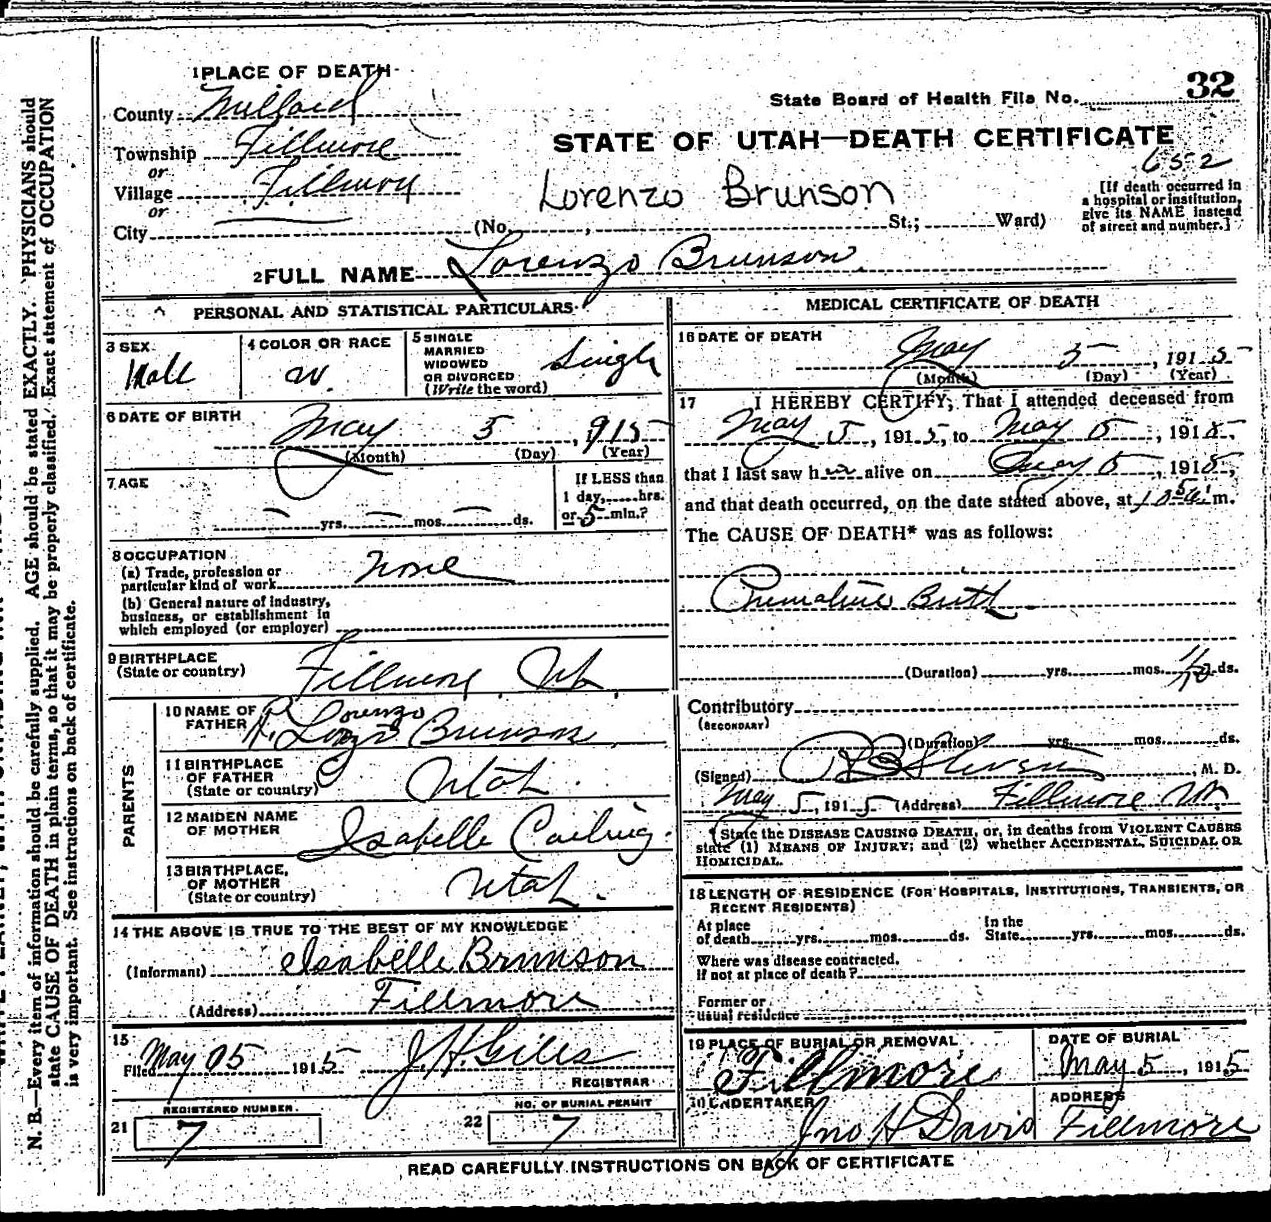 1 PLACE OF DEATH
County Millard
Township Fillmore
or
Village Fillmore
or
City
State Board of Health File No. 32
STATE OF UTAH—DEATH CERTIFICATE
652
Lorenzo Brunson
[If death occurred in
a hospital or institution,
give its NAME instead
of street and number.]
(No. , St.; Ward)
2 FULL NAME Lorenzo Brunson
PERSONAL AND STATISTICAL PARTICULARS
3 SEX
Male
4 COLOR OR RACE
W.
5 SINGLE
MARRIED
WIDOWED
OR DIVORCED
(Write the word)
Single
6 DATE OF BIRTH
May 5, 915
(Month) (Day) (Year)
7 AGE
— yrs. — mos. — ds.
If LESS than
1 day, hrs.
or 5 min.?
8 OCCUPATION
(a) Trade, profession or
particular kind of work None
(b) General nature of industry,
business, or establishment in
which employed (or employer)
9 BIRTHPLACE
(State or country) Fillmore, Ut.
PARENTS
10 NAME OF
FATHER R. Lorenzo Brunson
11 BIRTHPLACE
OF FATHER
(State or country) Utah.
12 MAIDEN NAME
OF MOTHER Isabelle
13 BIRTHPLACE,
OF MOTHER
(State or country) Utah.
14 THE ABOVE IS TRUE TO THE BEST OF MY KNOWLEDGE
(Informant) Isabelle Brunson
(Address) Fillmore
15
Filed May 05 1915 J. H. Giles
REGISTRAR
REGISTERED NUMBER.
21 7
NO. OF BURIAL PERMIT
22 7
MEDICAL CERTIFICATE OF DEATH
16 DATE OF DEATH
May 5, 1915
(Month) (Day) (Year)
17 I HEREBY CERTIFY, That I attended deceased from
May 5, 1915, to May 5, 1915,
that I last saw him alive on May 5, 1915,
and that death occurred, on the date stated above, at m.
The CAUSE OF DEATH* was as follows:
Premature Birth
(Duration) yrs. mos. ds.
Contributory
(SECONDARY)
(Duration) yrs. mos. ds.
(Signed) Stevens, M. D.
May 5, 1915 (Address) Fillmore Ut.
*State the DISEASE CAUSING DEATH, or, in deaths from VIOLENT CAUSES
state (1) MEANS OF INJURY; and (2) whether ACCIDENTAL, SUICIDAL OR
HOMICIDAL.
18 LENGTH OF RESIDENCE (FOR HOSPITALS, INSTITUTIONS, TRANSIENTS, OR
RECENT RESIDENTS)
At place
of death yrs. mos. ds.
In the
State yrs. mos. ds.
Where was disease contracted,
if not at place of death?
Former or
usual residence
19 PLACE OF BURIAL OR REMOVAL
Fillmore
DATE OF BURIAL
May 5, 1915
20 UNDERTAKER
Jno H Davis
ADDRESS
Fillmore
READ CAREFULLY INSTRUCTIONS ON BACK OF CERTIFICATE
N. B.—Every item of information should be carefully supplied. AGE should be stated EXACTLY. PHYSICIANS should
state CAUSE OF DEATH in plain terms, so that it may be properly classified. Exact statement of OCCUPATION
is very important. See instructions on back of certificate.